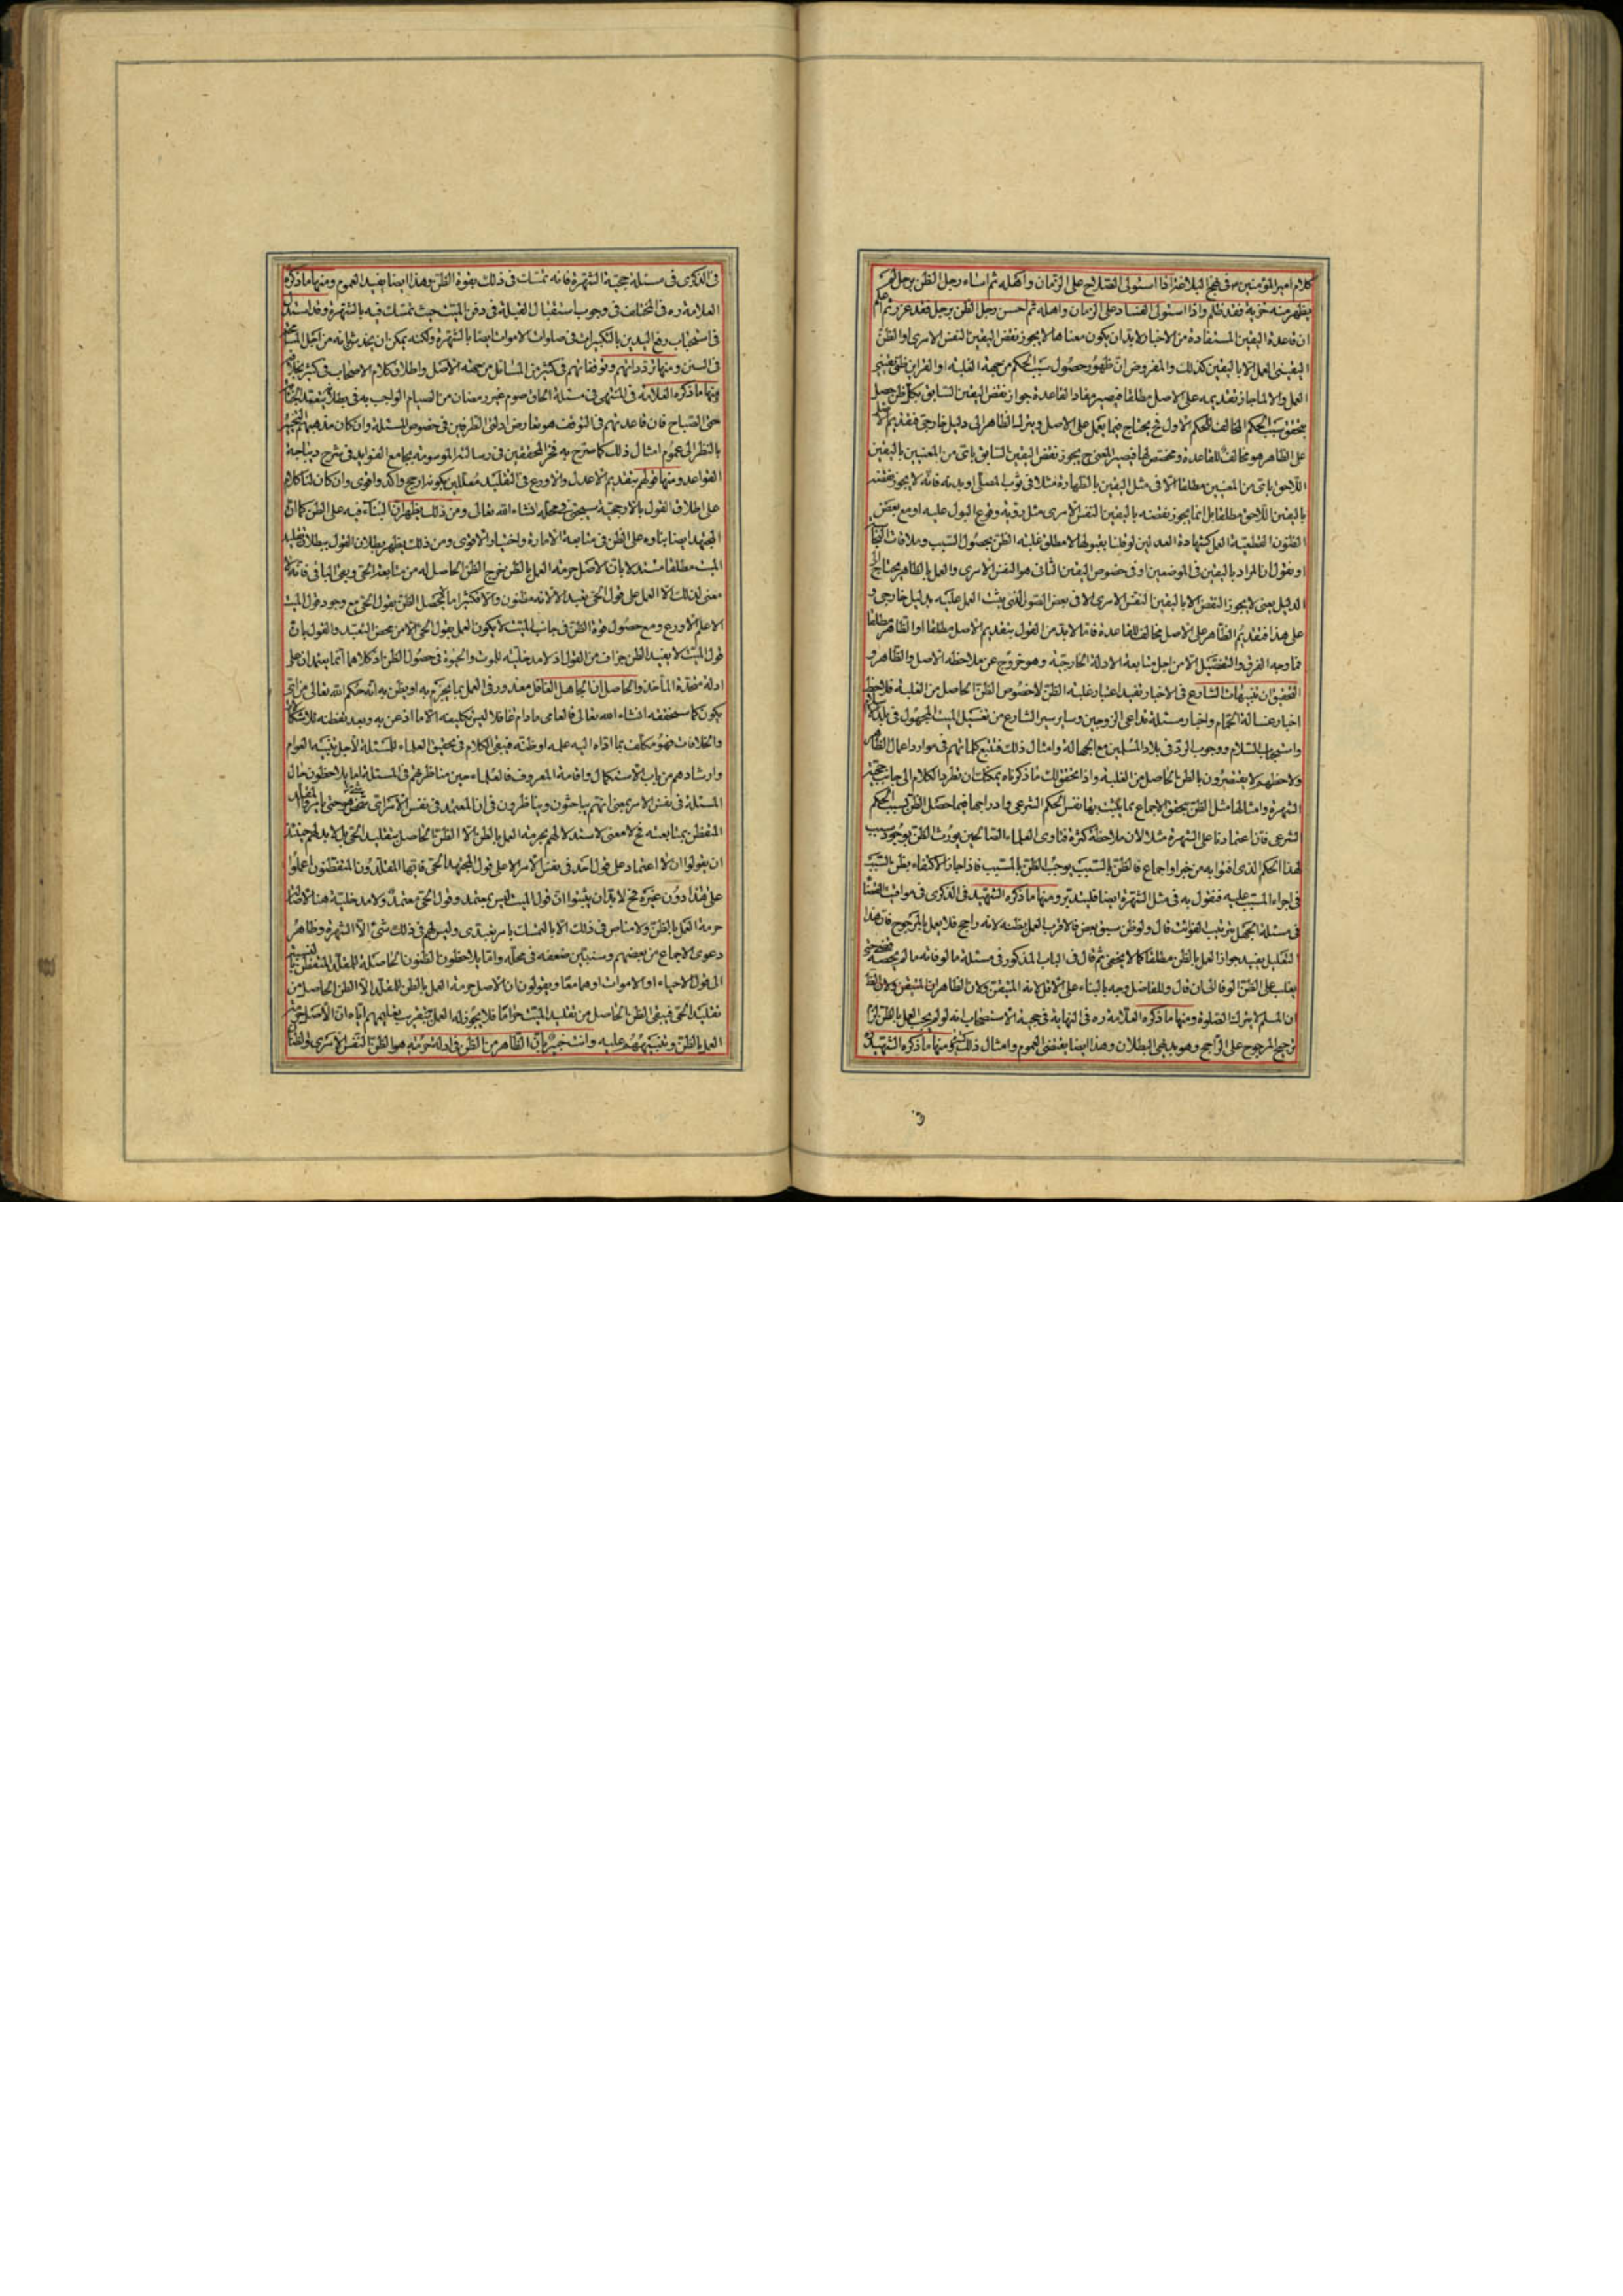 كلام امير المؤمنين ع في نهج البلاغة اذا استولى الصلاح على الزمان واهله ثم اساء رجل الظن برجل لم
يظهر منه خزية فقد ظلم واذا استولى الفساد على الزمان واهله ثم احسن رجل الظن برجل فقد غرر ثم اعلم
ان قاعدة اليقين المستفادة من الاخبار لا بد ان يكون معناها لا يجوز نقض اليقين النفس الامرى او الظن
اليقينى العمل الا باليقين كذلك والمفروض ان ظهور حصول سبب الحكم من جهة الغلبة او القراين ظنى يقينى
العمل والا لما جاز تقديمه على الاصل مطلقا فيصير مفاد القاعدة جواز نقض اليقين السابق بكل ظن حصل
بتحقق سبب الحكم المخالف للحكم الاول فح يحتاج فيما يعمل على الاصل ويترك الظاهر الى دليل خارجى فتقديم الاصل
على الظاهر هو مخالف للقاعدة ومخصص لها فيصير المعنى ح يجوز نقض اليقين السابق باى من المعنيين باليقين
اللاحق باى من المعنيين مطلقا الا في مثل اليقين بالطهارة مثلا في ثوب المصلى او بدنه فانه لا يجوز نقضه
باليقين اللاحق مطلقا بل انما يجوز نقضه باليقين النفس الامرى مثل رؤية وقوع البول عليه او مع بعض
الظنون القطعية العمل كشهادة العدلين لو قلنا بقبولها لا مطلق غلبة الظن بحصول السبب وملاقات النجاسة
او نقول ان المراد باليقين في الموضعين او في خصوص اليقين الثانى هو النفس الامرى والعمل بالظاهر يحتاج الى
الدليل يعنى لا يجوز النقض الا باليقين النفس الامرى الا في بعض الصور الذى يثبت العمل عليه بدليل خارجى و
على هذا فتقديم الظاهر على الاصل مخالف للقاعدة فاما لا بد من القول بتقديم الاصل مطلقا او الظاهر مطلقا
فما وجه الفرق والتفصيل الا من اجل متابعة الادلة الخارجية وهو خروج عن ملاحظة الاصل والظاهر و
التحقيق ان تنبيهات الشارع في الاخبار تفيد اعتبار غلبة الظن لا خصوص الظن الحاصل من الغلبة فلاحظ
اخبار غسالة الحمام واخبار مسئلة تداعى الزوجين وساير سير الشارع من تغسيل الميت المجهول في بلد الاسلام
واستحباب السلام ووجوب الرد في بلاد المسلمين مع الجهالة وامثال ذلك فتتبع كلماتهم في موارد اعمال الظاهر
ولاحظهم لا يقتصرون بالظن الحاصل من الغلبة واذا تحقق لك ما ذكرناه يمكنك ان نطرد الكلام الى جانب حجية
الشهرة وامثالها مثل الظن بتحقق الاجماع مما يثبت بها نفس الحكم الشرعى وادراجها فيما حصل الظن بسبب الحكم
الشرعى فان اعتمادنا على الشهرة مثلا لان ملاحظة كثرة فتاوى العلماء الصالحين يورث الظن بوجود سبب
لهذا الحكم الذى افتوا به من خبر او اجماع فالظن بالسبب يوجب الظن بالمسبب فاذا جاز الاكتفاء بظن السبب
في اجراء المسبب عليه فنقول به في مثل الشهرة ايضا فليتدبر ومنها ما ذكره الشهيد في الذكرى في مواقيت القضاء
في مسئلة الجهل بترتيب الفوائت قال ولو ظن سبق بعض فالاقرب العمل بظنه لانه راجح فلا يعمل بالمرجوح فان هذا
التعليل يفيد جواز العمل بالظن مطلقا كما لا يخفى ثم قال في الباب المذكور في مسئلة ما لو فاته ما لم يحصه
يغلب على الظن الوفا الى ان قال وللفاضل وجه بالبناء على الاقل لانه المتيقن ولان الظاهر
ان المسلم لا يترك الصلوة ومنها ما ذكره العلامة ره في النهاية في حجية الاستصحاب انه لو لم يجب العمل بالظن لزم
ترجيح المرجوح على الراجح وهو بديهى البطلان وهذا ايضا يقتضى العموم وامثال ذلك كثير ومنها ما ذكره الشهيد
في الذكرى في مسئلة حجية الشهرة فانه تمسك في ذلك بقوة الظن وهذا ايضا يفيد العموم ومنها ما ذكره
العلامة ره في المختلف في وجوب استقبال القبلة في دفن الميت حيث تمسك فيه بالشهرة وقد استدل
في استحباب رفع اليدين بالتكبيرات في صلوات الاموات ايضا بالشهرة ولكنه يمكن ان يخدش بانه من اجل المسامحة
في السنن ومنها تردداتهم وتوقفاتهم في كثير من المسائل من جهة الاصل واطلاق كلام الاصحاب في كثير
ومنها ما ذكره العلامة في المنتهى في مسئلة الحاق صوم غير رمضان من الصيام الواجب به في بطلانه بتعمد الجنابة
حتى الصباح فان قاعدتهم في التوقف هو تعارض ادلتى الطرفين في خصوص المسئلة وان كان مذهبهم التخيير
بالنظر الى عموم امثال ذلك كما صرح به فخر المحققين في رسالته الموسومة بجامع الفوايد في شرح ديباجة
القواعد ومنها قولهم بتقديم الاعدل والاورع في التقليد معللين بكونه ارجح واكد واقوى وان كان لنا كلام
على اطلاق القول بالارجحية سيجئ في محله انشاء الله تعالى ومن ذلك يظهر ان البناء فيه على الظن كما ان
المجتهد ايضا بناؤه على الظن في متابعة الامارة واختيار الاقوى ومن ذلك يظهر بطلان القول ببطلان تقليد
الميت مطلقا مستدلا بان الاصل حرمة العمل بالظن خرج الظن الحاصل له من متابعة الحى وبقى الباقى فانه لا
معنى لذلك الا العمل على قول الحى تعبدا لا لانه مظنون والا فكثيرا ما لا يحصل الظن بقول الحى مع وجود قول الميت
الاعلم الاورع ومع حصول قوة الظن في جانب الميت لا يكون العمل بقول الحى الا من محض التعبد والقول بان
قول الميت لا يفيد الظن جزاف من القول اذ لا مدخلية للموت والحيوة في حصول الظن اذ كلاهما انما يعتمدان على
ادلة متحدة المأخذ والحاصل ان الجاهل الغافل معذور في العمل بما يجزم به او يظن به انه حكم الله تعالى من اى
يكون كما سنحققه انشاء الله تعالى فالعامى ما دام غافلا ليس تكليفه الا ما اذعن به وبعد تفطنه للاشكال
والخلافات فهو مكلف بما اداه اليه علمه او ظنه فيبقى الكلام في تحقيق العلماء للمسئلة لاجل تنبيه العوام
وارشادهم من باب الاستكمال واقامة المعروف فالعلماء حين مناظرتهم في المسئلة اما يلاحظون حال
المسئلة في نفس الامر بمعنى انهم يباحثون ويناظرون في ان المعتمد في نفس الامر اى شخص هو حتى يامروا المقلد
المتفطن بمتابعته فح لا معنى لاستدلالهم بحرمة العمل بالظن الا الظن الحاصل بتقليد الحى بل لا بد لهم حينئذ
ان يقولوا ان لا اعتماد على قول احد في نفس الامر الا على قول المجتهد الحى فايها المقلدون المتفطنون اعملوا
على هذا دون غيره فح لا بد ان يثبتوا ان قول الميت ليس بمعتمد وقول الحى معتمد ولا مدخلية هنا لاصالة
حرمة العمل بالظن ولا مناص في ذلك الا بالتمسك بامر تعبدى وليس لهم في ذلك شئ الا الشهرة وظاهر
دعوى الاجماع من بعضهم وسنبين ضعفه في محله واما يلاحظون الظنون الحاصلة للمقلد المتفطن
الى قول الاحياء او الاموات او هما معا ويقولون ان الاصل حرمة العمل بالظن للمقلد الا الظن الحاصل من
تقليد الحى فيبقى الظن الحاصل من تقليد الميت حراما فلا يجوز له العمل
العمل بالظن وتنبيههم عليه وانت خبير بان الظاهر من الظن في ادلة حرمته هو الظن النفس الامرى